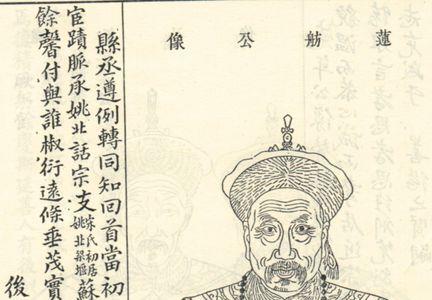 蓮舫公像
縣丞遵例轉同知回首當初
宦蹟脈承姚北話宗支宋氏初居姚北梁堰蘇
餘馨付與誰椒衍遠條垂茂實
後